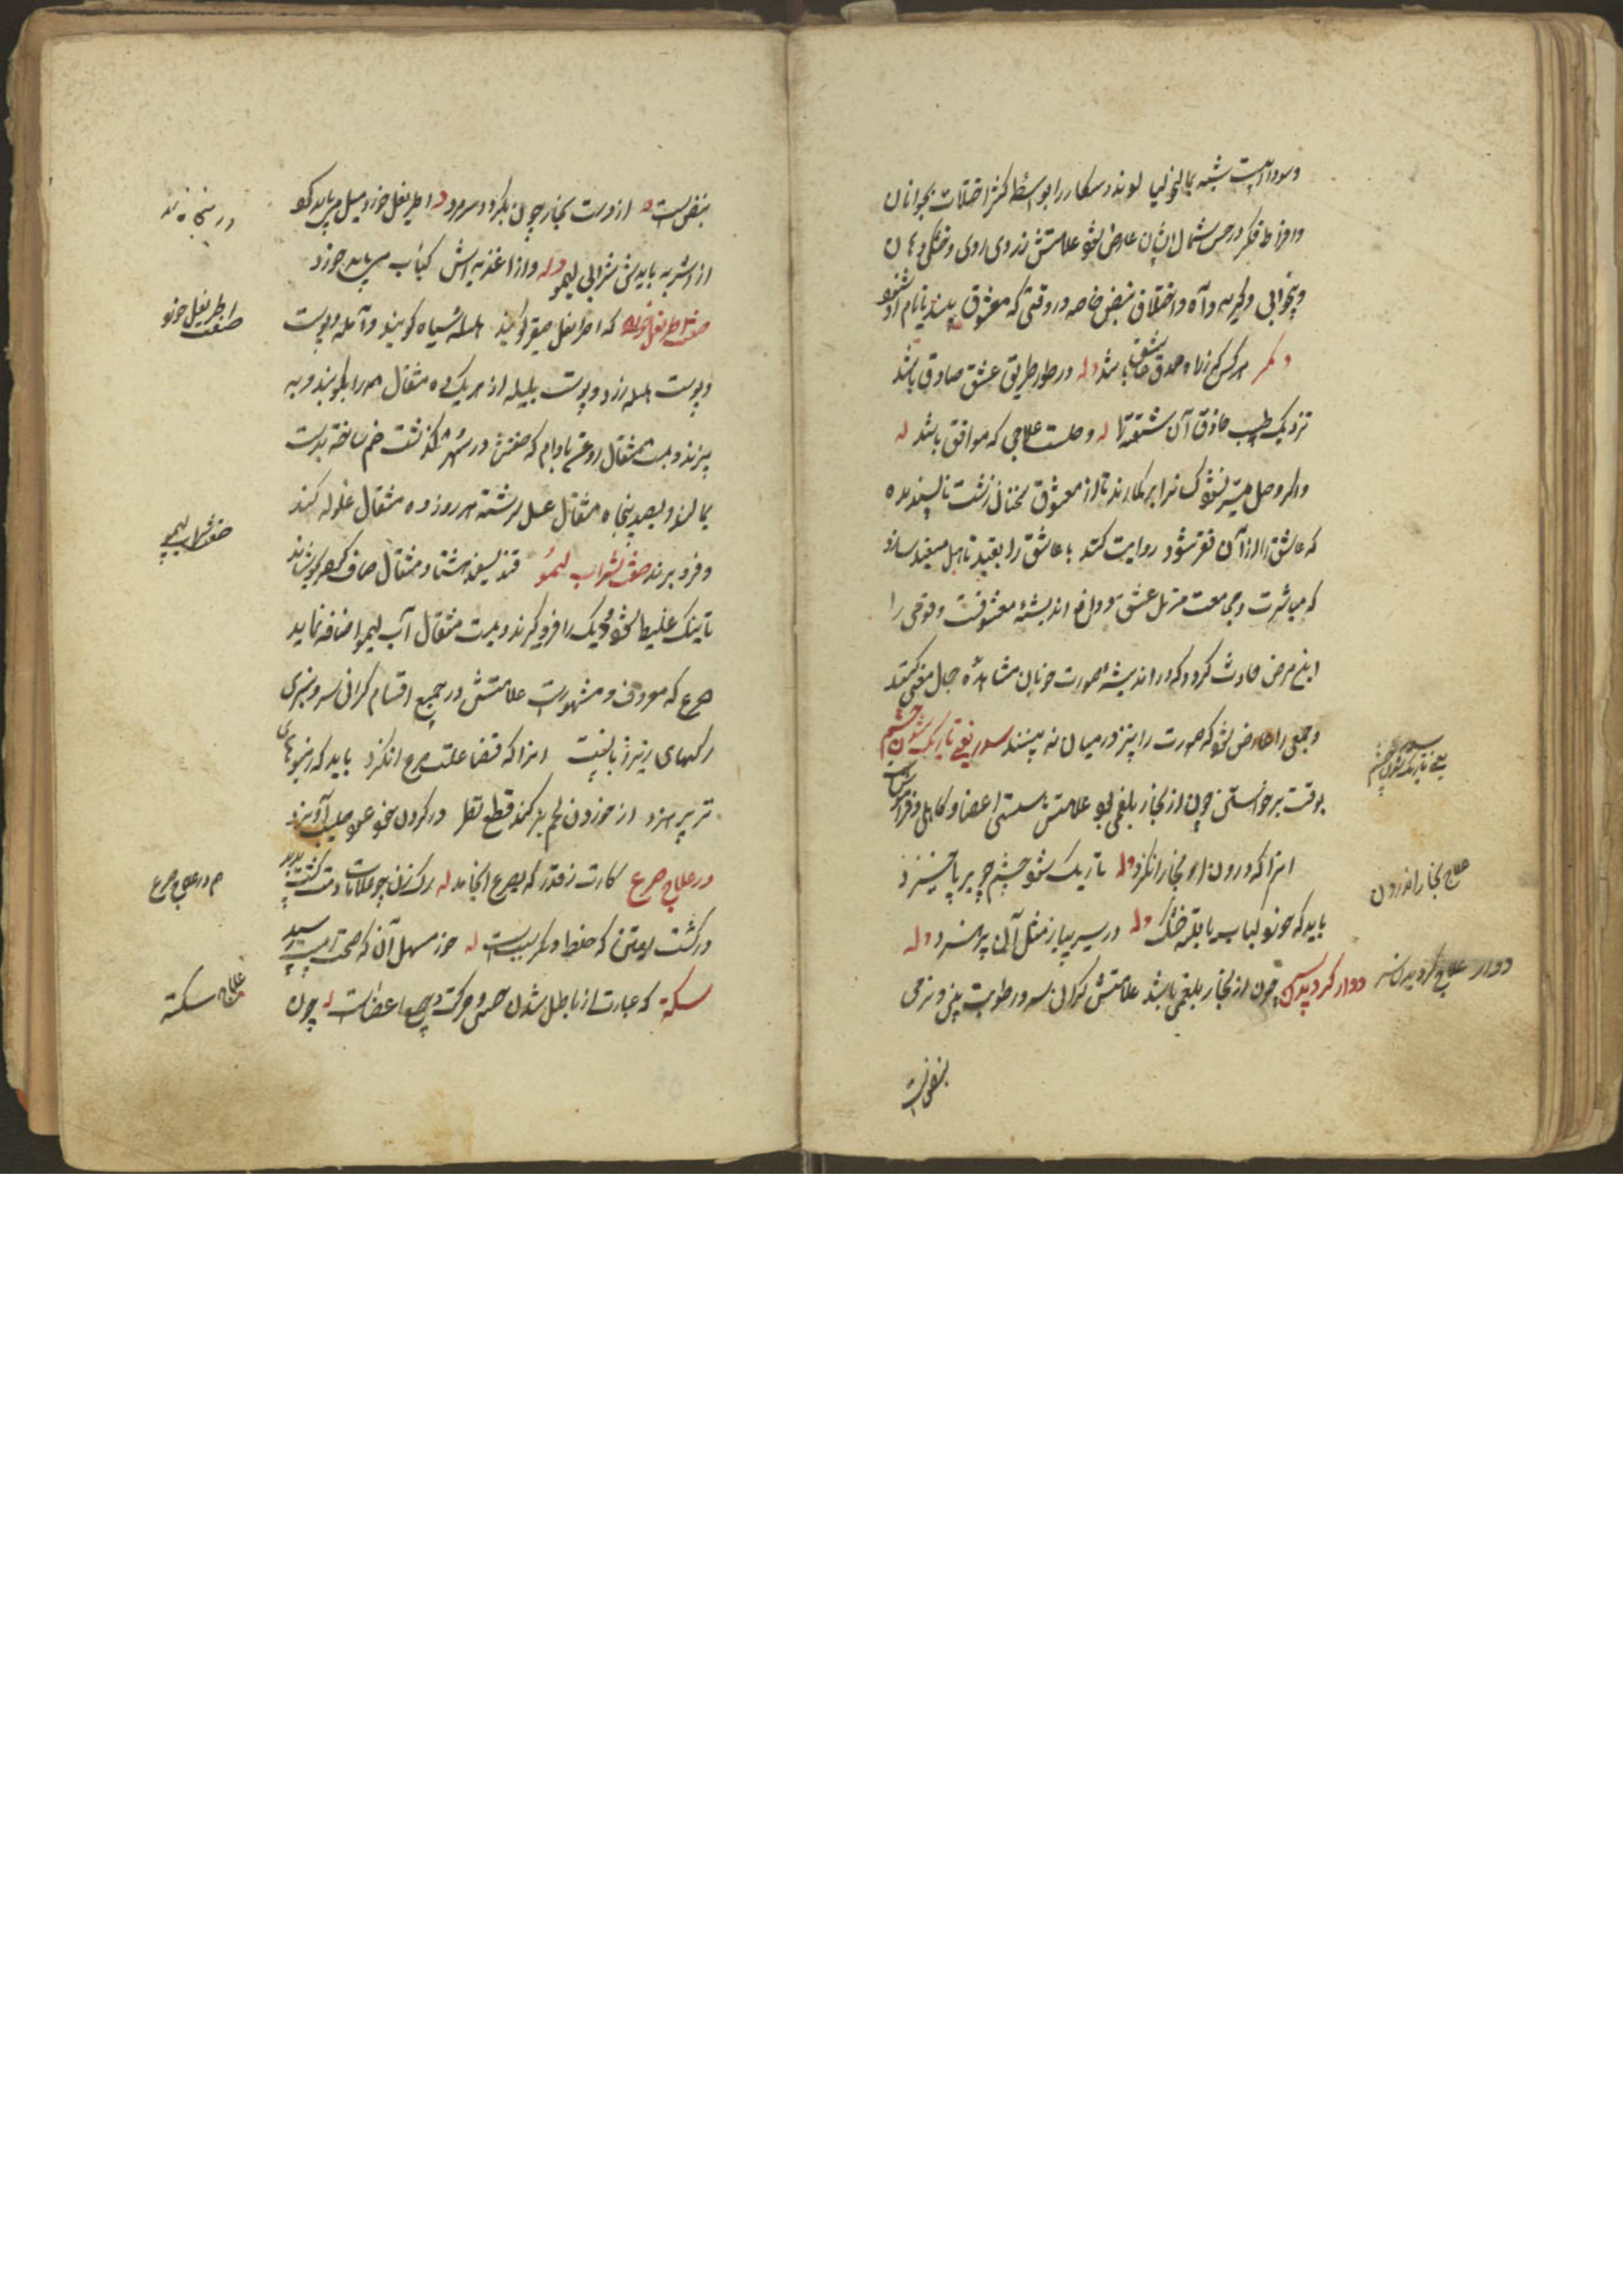 وسوداییست شبیه بمالیخولیا
وافراط فکر در حسن شمایل ایشان عارض شود علامتش زردی روی و خشکی دهان
وبیخوابی وگریه وآه واختلاف نبض خاصه در وقتی که معشوق بیند یا نام او شنود
هر کس که ز راه صدق عاشق باشد وله در طور طریق عشق صادق باشد
نزدیک طبیب حاذق آن شیفته را وصلست علاجی که موافق باشد
واگر وصل میسر نشود کسانرا بر گمارند تا از معشوق سخنان زشت ناپسندیده
که عاشق را از آن نفرت شود روایت کنند یا عاشق را بقید تاهل مقید سازند
که مباشرت ومجامعت مزیل عشق ودافع اندیشهٔ معشوقست وقومی را
این مرض حادث گردد که در اندیشه صورت خوبان مشاهده جمال معنی کنند
وجمعی را عارض شود که صورت را نیز در میان نه بینند سدر یعنی تاریک شدن چشم
بوقت برخواستن چون از بخار بلغمی بود علامتش سستی اعضا وکاهلی و فراموشی
انرا که درون او بخار انگیزد وله تاریک شود چشم چو بر پا خیزد
باید که خورد کباب یا بقیه خشک وله در سیر پیاز مثل آن پرهیزد وله
دوار گردیدن سر چون از بخار بلغمی باشد علامتش گرانی سر ورطوبت بینی ونرمی
نبض است
سدر یعنی تاریک شدن چشم
علاج بخار اندرون
دوار علاج گردیدن سر
نبض است از دست بخار چون بگردد سر مرد اطریفل خورد میل میباید کرد
از اشربه بایدش شرابی لیمو وله واز اغذیه اش کباب میباید خورد
صفت اطریفل خورد که اطریفل صغیر گویند هلیله سیاه گویند وآمله وپوست
وپوست هلیله زرد وپوست بلیله از هر یک ده مثقال همه را بکوبند وبه
بیزند وبیست مثقال روغن بادام که صفتش در سهر گذشت ضم ساخته بدست
بمالند وبصد پنجاه مثقال عسل سرشته هر روز ده مثقال غلوله کنند
وفرو برند صفت شراب لیمو قند سفید هشتاد مثقال صاف کرده بجوشانند
تا نیک غلیظ شود ودیگ را فرو گیرند وبیست مثقال آب لیمو اضافه نمایند
صرع که معروف ومشهورست علامتش در جمیع اقسام گرانی سر وسبزی
رگهای زیر زبانست انرا که قضا علت صرع انگیزد باید که ز میوهای
تر پرهیزد از خوردن لحم بز کند قطع نظر در گردن خود عود صلیب آویزد
در علاج صرع کارت ز قدر که بصرع انجامد له رگ زن چو علامات دمت گشت پدید
در گشت یقین که خلط دیگر سببست له خور مسهل آن که صحتت است رسید
سکته که عبارت از باطل شدن حس وحرکت جمیع اعضاست له چون
صفت اطریفل خورد
صفت شراب لیمو
در علاج صرع
علاج سکته